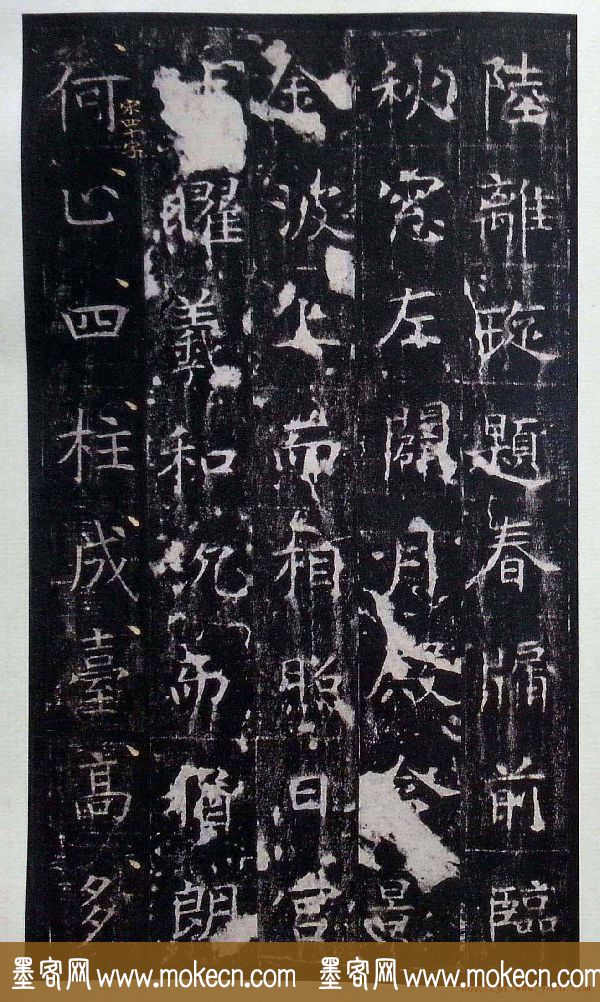 陸離題春牖前臨
秋窓左闢月殿含
金波而相照日宮
曜羲和沉而猶朗
何止四柱成臺高多
墨客网 www.mokecn.com 墨客网 www.mokecn.com